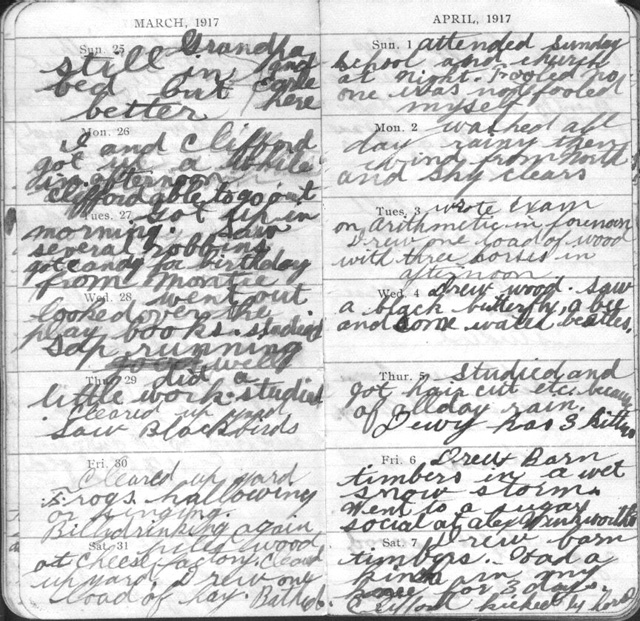 MARCH, 1917
Sun. 25 Grandpa
still in and
bed but Earle
better here
Mon. 26
I and Clifford
got up a while
in afternoon
Clifford able to go out
Tues. 27 got up in
morning. Saw
several robbins
got candy for birthday
from Montie
Wed. 28 went out
looked over the
play books. studied
Sap running
good well
Thur. 29 did a
little work. studied
Cleared up yard
Saw Blackbirds
Fri. 30
Cleared up yard
Frogs hallowing
or singing.
Bill drinking again
Sat. 31 piled wood
at cheese factory. Cleaned
up yard. Drew one
load of hay. Bathed.
APRIL, 1917
Sun. 1 attended Sunday
School and church
at night. Fooled no
one was not fooled
myself
Mon. 2 washed all
day rainy then
wind from North
and sky clears
Tues. 3 wrote Exam
on Arithmetic in forenoon
Drew one load of wood
with three horses in
afternoon
Wed. 4 Drew wood. Saw
a black butterfly, a bee
and some water beetles.
Thur. 5 Studied and
got hair cut etc. because
of all day rain.
Dewy has 3 kittens
Fri. 6 Drew Barn
timbers in a wet
snow storm.
Went to a sugar
social at Alex Wrinkworths
Sat. 7 Drew barn
timbers. Had a
in my
knee for 3 days.
Clifford kicked by horse